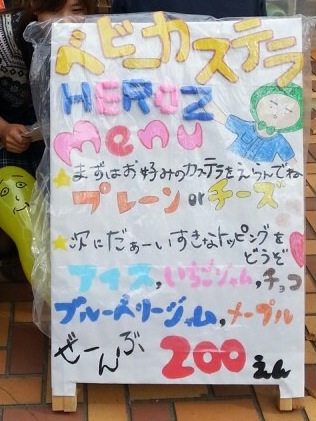 ベビーカステラ
HEROZ
menu
★まずはお好みのカステラをえらんでね
プレーン or チーズ
★次にだぁーいすきなトッピングを
どうぞ
アイス,いちごジャム,チョコ
ブルーベリージャム,メープル
ぜーんぶ 200 えん